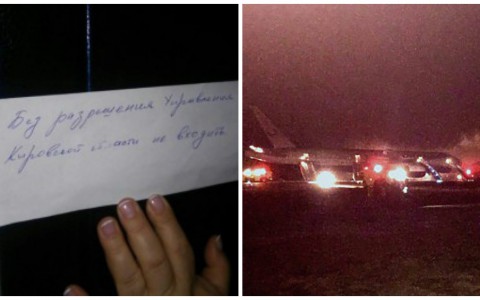 Без разрешения Управления
Кировской ст. не входить